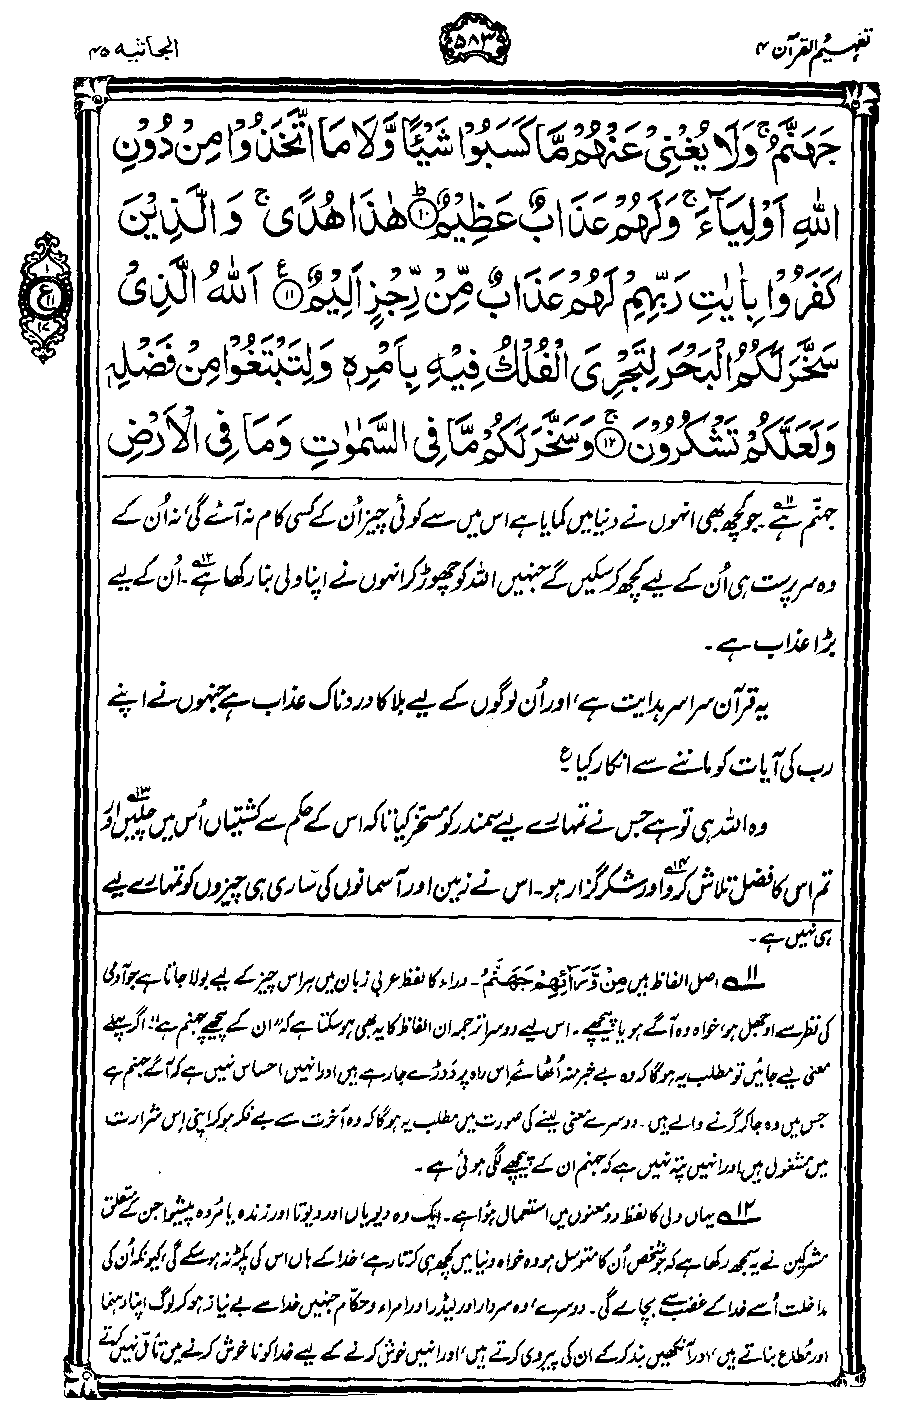 تفہیم القرآن ۴
۵۸۳
الجاثیہ ۴۵
جَهَنَّمُ ۚ وَلَا يُغْنِي عَنْهُمْ مَّا كَسَبُوْا شَيْـًٔا وَّلَا مَا اتَّخَذُوْا مِنْ دُوْنِ
اللّٰهِ اَوْلِيَآءَ ۚ وَلَهُمْ عَذَابٌ عَظِيْمٌ ؕ ۱۰ هٰذَا هُدًى ۚ وَالَّذِيْنَ
كَفَرُوْا بِاٰيٰتِ رَبِّهِمْ لَهُمْ عَذَابٌ مِّنْ رِّجْزٍ اَلِيْمٌ ۱۱ ع اَللّٰهُ الَّذِيْ
سَخَّرَ لَكُمُ الْبَحْرَ لِتَجْرِيَ الْفُلْكُ فِيْهِ بِاَمْرِهٖ وَلِتَبْتَغُوْا مِنْ فَضْلِهٖ
وَلَعَلَّكُمْ تَشْكُرُوْنَ ۚ ۱۲ وَسَخَّرَ لَكُمْ مَّا فِي السَّمٰوٰتِ وَمَا فِي الْاَرْضِ
جہنم ہے۱۱۔ جو کچھ بھی انہوں نے دنیا میں کمایا ہے اس میں سے کوئی چیز اُن کے کسی کام نہ آئے گی، نہ اُن کے
وہ سرپرست ہی اُن کے لیے کچھ کر سکیں گے جنہیں اللہ کو چھوڑ کر انہوں نے اپنا ولی بنا رکھا ہے۱۲۔ اُن کے لیے
بڑا عذاب ہے۔
یہ قرآن سراسر ہدایت ہے، اور اُن لوگوں کے لیے بلا کا دردناک عذاب ہے جنہوں نے اپنے
رب کی آیات کو ماننے سے انکار کیا ع
وہ اللہ ہی تو ہے جس نے تمہارے لیے سمندر کو مسخر کیا تاکہ اس کے حکم سے کشتیاں اُس میں چلیں۱۳ اور
تم اس کا فضل تلاش کرو۱۴ اور شکر گزار ہو۔ اس نے زمین اور آسمانوں کی ساری ہی چیزوں کو تمہارے لیے
ہی نہیں ہے۔
۱۱ اصل الفاظ ہیں مِنْ وَّرَآئِهِمْ جَهَنَّمُ۔ وراء کا لفظ عربی زبان میں ہر اس چیز کے لیے بولا جاتا ہے جو آدمی
کی نظر سے اوجھل ہو، خواہ وہ آگے ہو یا پیچھے۔ اس لیے دوسرا ترجمہ ان الفاظ کا یہ بھی ہو سکتا ہے کہ "ان کے پیچھے جہنم ہے"۔ اگر پہلے
معنی لیے جائیں تو مطلب یہ ہوگا کہ وہ بے خبر منہ اُٹھائے اس راہ پر دَوڑے جا رہے ہیں اور انہیں احساس نہیں ہے کہ آگے جہنم ہے
جس میں وہ جا کر گرنے والے ہیں۔ دوسرے معنی لینے کی صورت میں مطلب یہ ہوگا کہ وہ آخرت سے بے فکر ہو کر اپنی اِس شرارت
میں مشغول ہیں اور انہیں پتہ نہیں ہے کہ جہنم ان کے پیچھے لگی ہوئی ہے۔
۱۲ یہاں ولی کا لفظ دو معنوں میں استعمال ہُوا ہے۔ ایک وہ دیویاں اور دیوتا اور زندہ یا مُردہ پیشوا جن کے متعلق
مشرکین نے یہ سمجھ رکھا ہے کہ جو شخص اُن کا متوسل ہو وہ خواہ دنیا میں کچھ ہی کرتا رہے، خدا کے ہاں اس کی پکڑ نہ ہو سکے گی، کیونکہ اُن کی
مداخلت اُسے خدا کے غضب سے بچا لے گی۔ دوسرے، وہ سردار اور لیڈر اور امراء و حکام جنہیں خدا سے بے نیاز ہو کر لوگ اپنا رہنما
اور مُطاع بناتے ہیں، اور آنکھیں بند کر کے ان کی پیروی کرتے ہیں، اور انہیں خوش کرنے کے لیے خدا کو ناخوش کرنے میں تأمّل نہیں کرتے